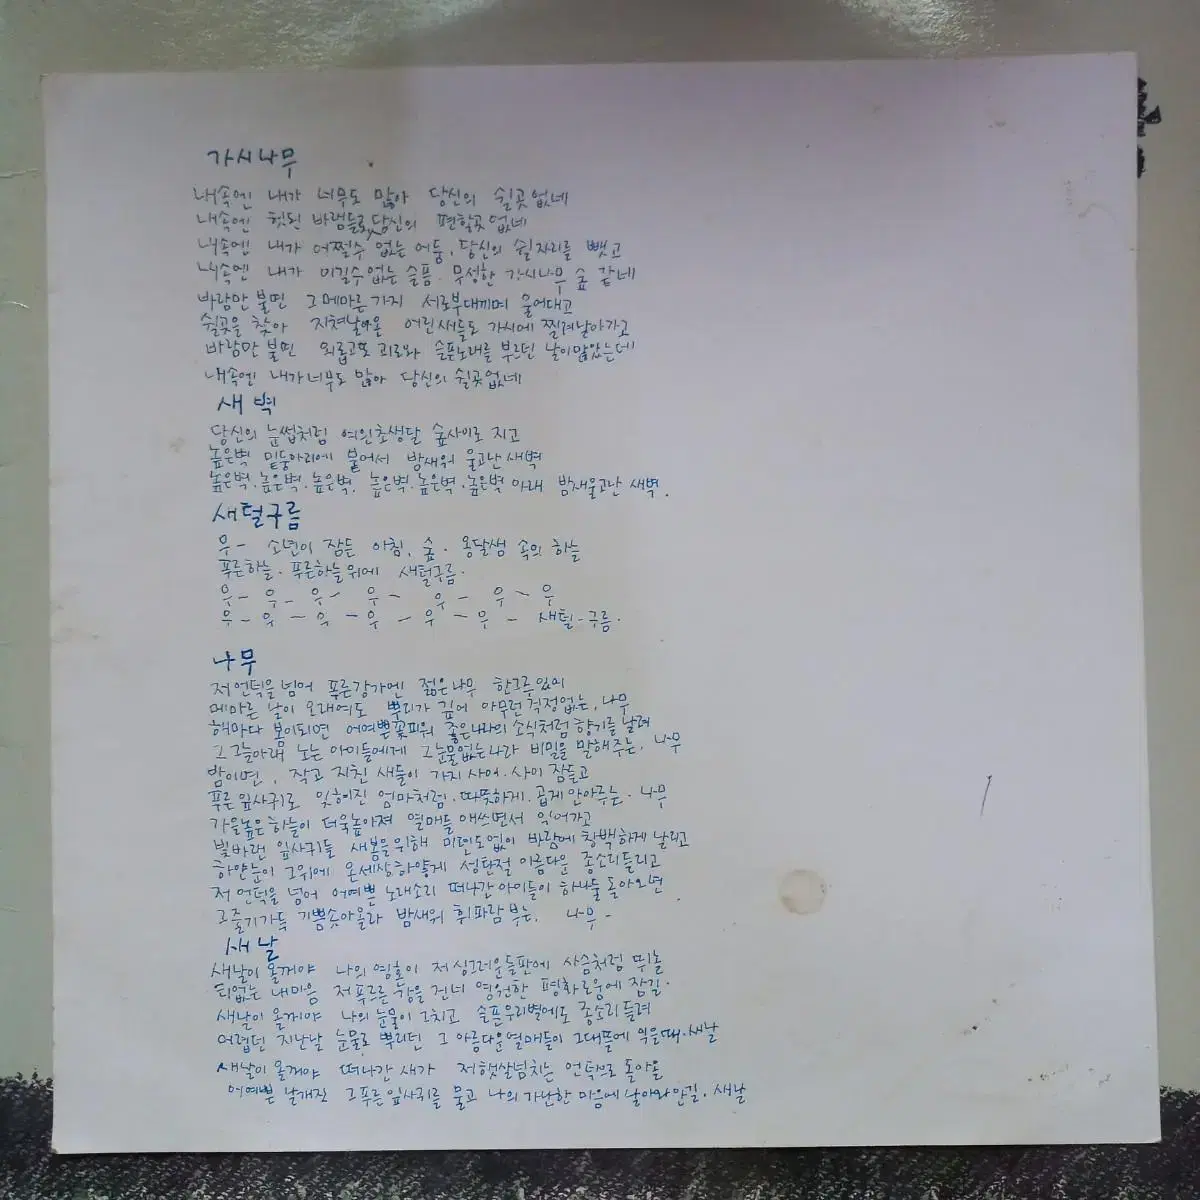 가시나무
내속엔 내가 너무도 많아 당신의 쉴곳없네
내속엔 헛된 바램들로, 당신의 편할곳없네
내속엔 내가 어쩔수 없는 어둠, 당신의 쉴자리를 뺏고
내속엔 내가 이길수없는 슬픔. 무성한 가시나무 숲 같네
바람만 불면 그메마른가지 서로부대끼며 울어대고
쉴곳을 찾아 지쳐날아온 어린새들도 가시에 찔려날아가고
바람만 불면 외롭고또 괴로와 슬픈노래를 부르던 날이많았는데
내속엔 내가너무도 많아 당신의 쉴곳없네
새벽
당신의 눈썹처럼 여윈초생달 숲사이로 지고
높은벽 밑둥아리에 붙어서 밤새워 울고난새벽
높은벽.높은벽.높은벽. 높은벽.높은벽.높은벽 아래 밤새울고난 새벽.
새털구름
우- 소년이 잠든 아침, 숲. 옹달샘 속의 하늘
푸른하늘. 푸른하늘위에 새털구름.
우- 우- 우- 우- 우- 우- 우
우- 우- 우- 우- 우- 우- 새털-구름.
나무
저언덕을넘어 푸른강가엔 젊은나무 한그루있어
메마른 날이 오래여도 뿌리가 깊어 아무런걱정없는, 나무
해마다 봄이되면 어여쁜꽃피워 좋은나라의 소식처럼 향기를 날려
그그늘아래 노는 아이들에게 그눈물없는나라 비밀을 말해주는, 나무
밤이면, 작고 지친 새들이 가지 사이, 사이 잠들고
푸른잎사귀로 잊혀진 엄마처럼. 따뜻하게. 곱게안아주는. 나무
가을높은하늘이 더욱높아져 열매들 애쓰면서 익어가고
빛바랜 잎사귀들 새봄을위해 미련도없이 바람에 창백하게 날리고
하얀눈이 그위에 온세상하얗게 성탄절 아름다운 종소리들리고
저 언덕을 넘어 어여쁜 노래소리 떠나간아이들이 하나둘 돌아오면
그줄기가득 기쁨솟아올라 밤새워 휘파람 부는, 나무-
새날
새날이 올꺼야 나의 영혼이 저싱그러운들판에 사슴처럼 뛰놀
티없는 내마음 저푸르른 강을 건너 영원한 평화로움에 잠길.
새날이 올꺼야 나의 눈물이 그치고 슬픈우리별에도 종소리 들려
어렵던 지난날 눈물로 뿌리던 그 아름다운열매들이 그대뜰에 익을때. 새날
새날이 올꺼야 떠나간 새가 저햇살넘치는 언덕으로 돌아올
어여쁜 날개진 그푸른 잎사귀를 물고 나의가난한 마음에 날아와안길. 새날